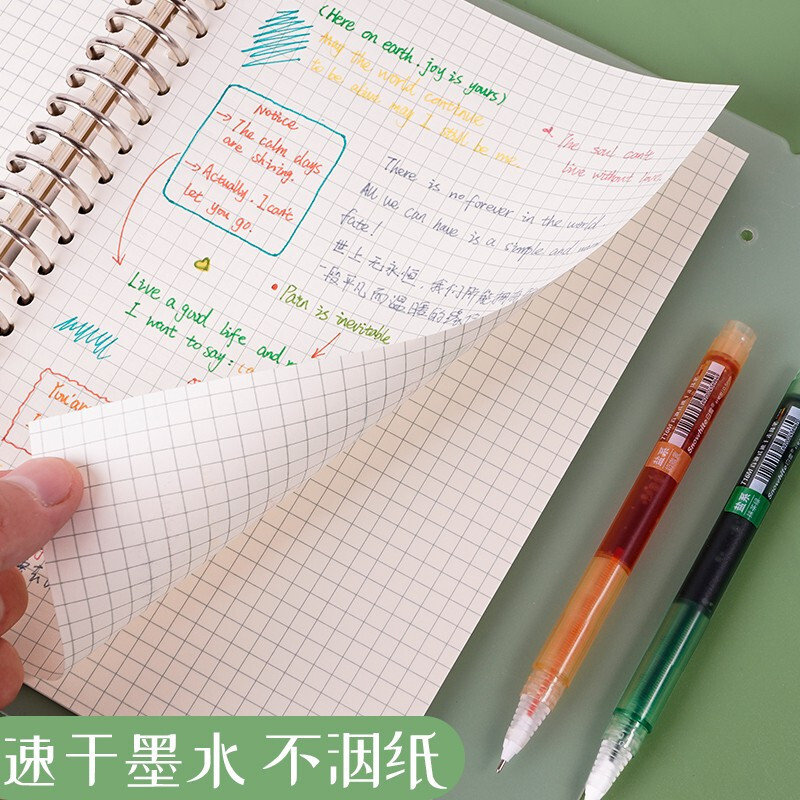 (Here on earth. joy is yours)
may the world continue
to be alive may I still be me
Notice
→ The calm days
are shining.
→ Actually. I can't
let you go.
The soul can't
live without love
There is no forever in the world
All we can have is a simple and warm
fate!
世上无永恒,我们所能拥有的
一段平凡而温暖的缘
Live a good life and
I want to say:
Pain is inevitable
You
盐系
Snowhite
盐系
Snowhite
速干墨水 不洇纸